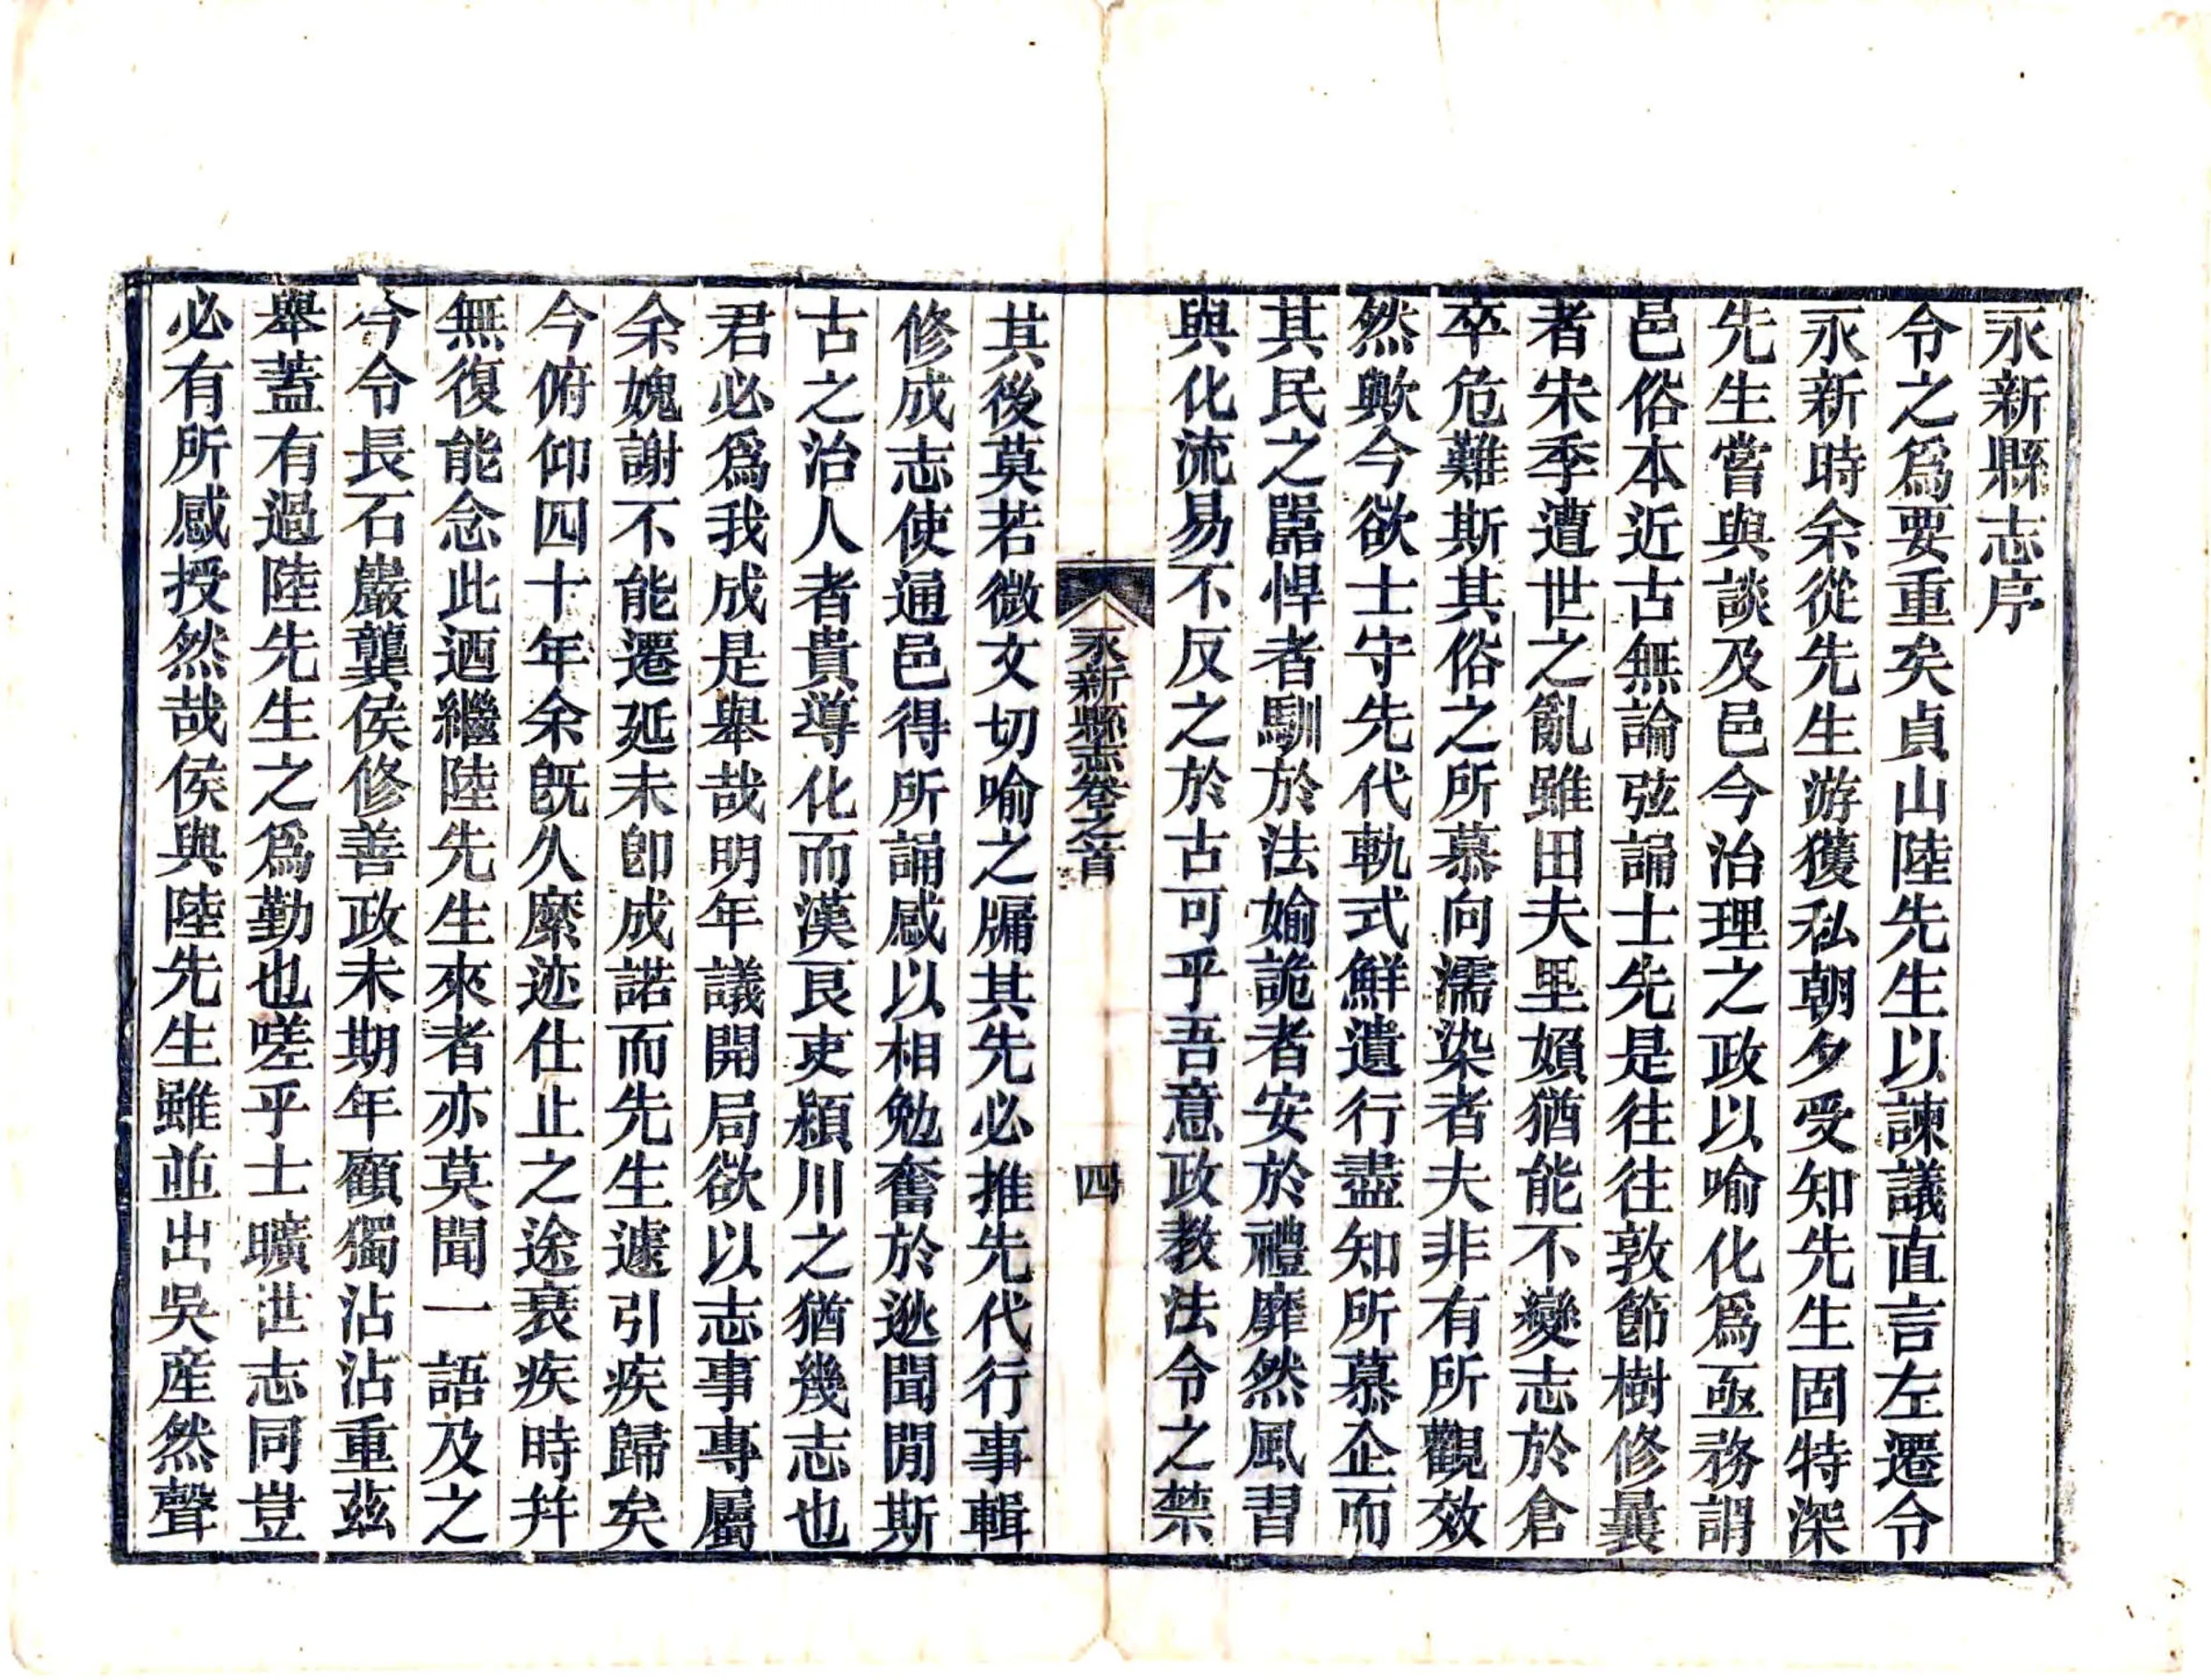 永新縣志序
令之爲要重矣貞山陸先生以諫議直言左遷令
永新時余從先生游獲私朝夕受知先生固特深
先生嘗與談及邑今治理之政以喻化爲亟務謂
邑俗本近古無論弦誦士先是往往敦節樹修曩
者宋季遭世之亂雖田夫里媍猶能不變志於倉
卒危難斯其俗之所慕向濡染者夫非有所觀效
然歟今欲士守先代軌式鮮遺行盡知所慕企而
其民之嚚悍者馴於法婾詭者安於禮靡然風習
與化流易不反之於古可乎吾意政教法令之禁
永新縣志卷之首
四
其後莫若微文切喻之牖其先必推先代行事輯
修成志使通邑得所誦感以相勉奮於逖聞閒斯
古之治人者貴導化而漢良吏潁川之猶幾志也
君必爲我成是舉哉明年議開局欲以志事專屬
余媿謝不能遷延未卽成諾而先生遽引疾歸矣
今俯仰四十年余旣久縻迹仕止之途衰疾時幷
無復能念此迺繼陸先生來者亦莫聞一語及之
今令長石巖龔侯修善政未期年顧獨沾沾重茲
舉蓋有過陸先生之爲勤也嗟乎士曠世志同豈
必有所感授然哉侯與陸先生雖並出吳産然聲